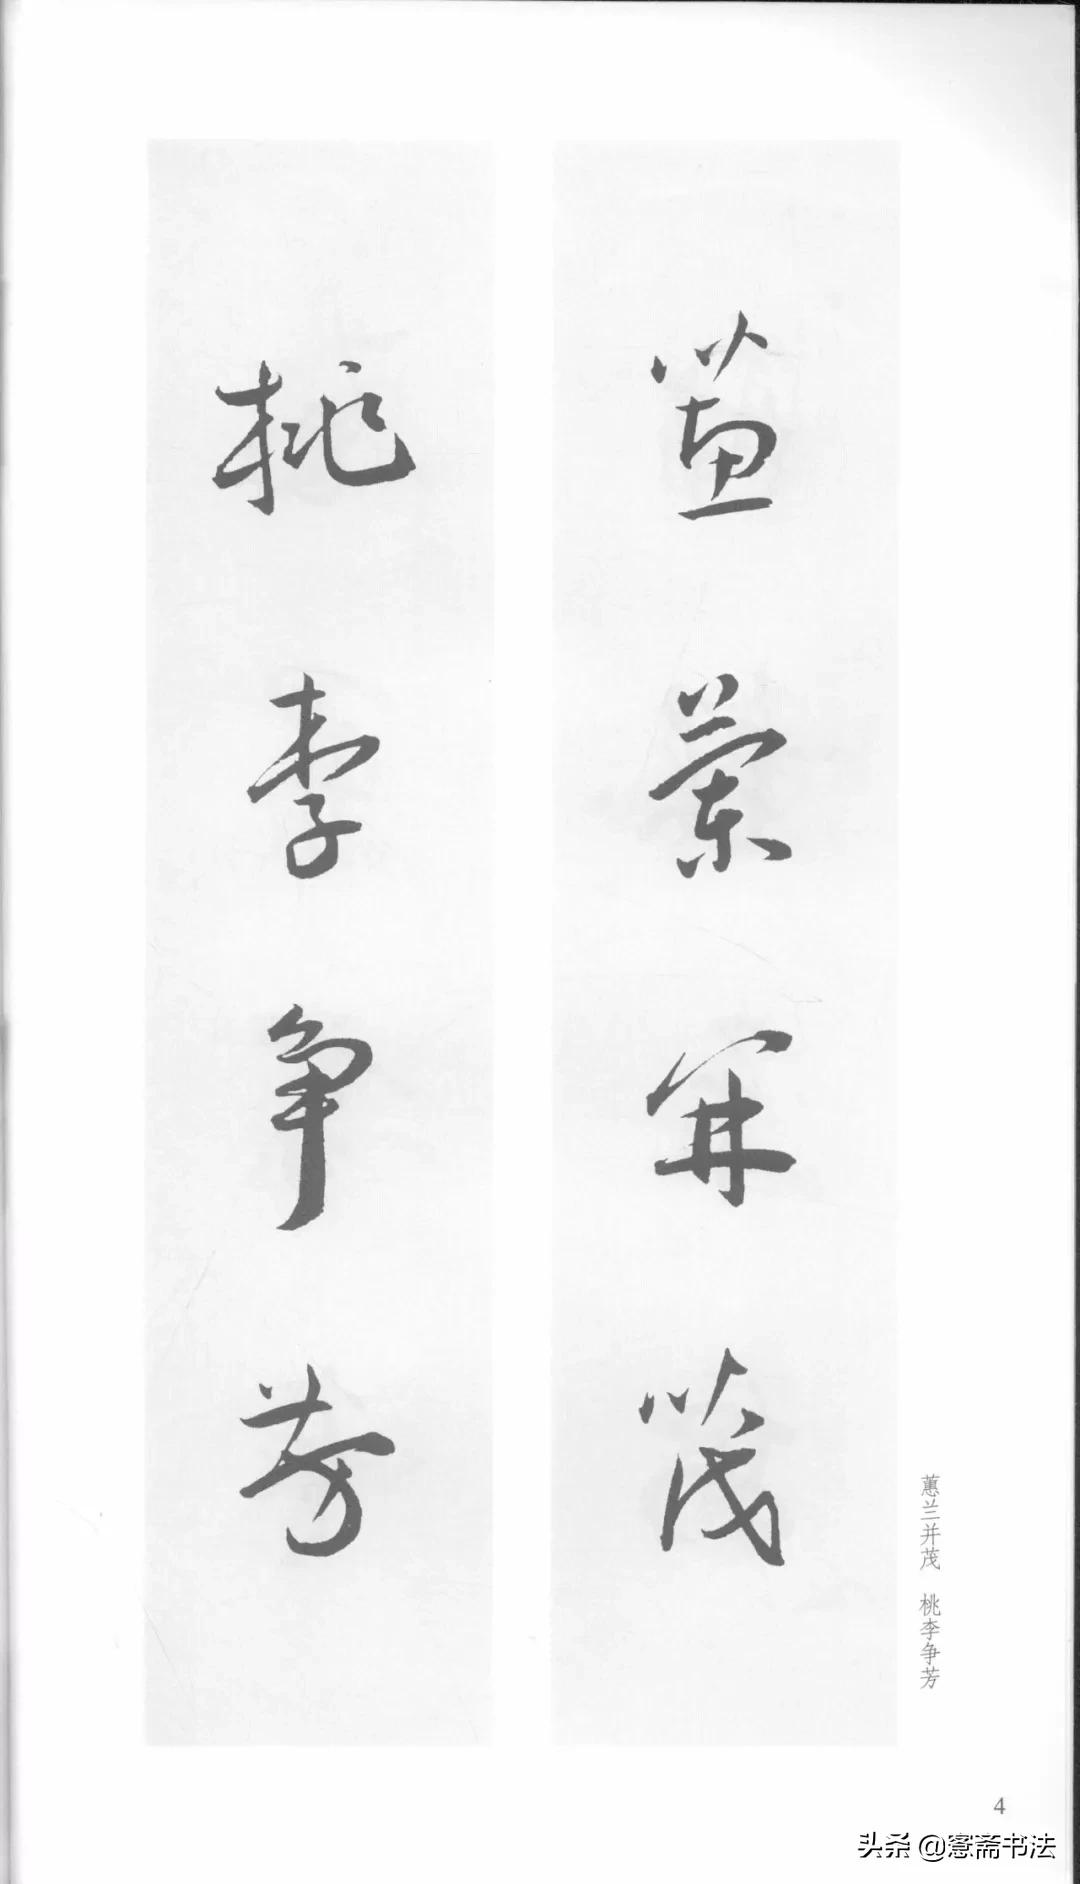 蕙蘭并茂
桃李争芳
蕙兰并茂 桃李争芳
4
头条 @窓斋书法